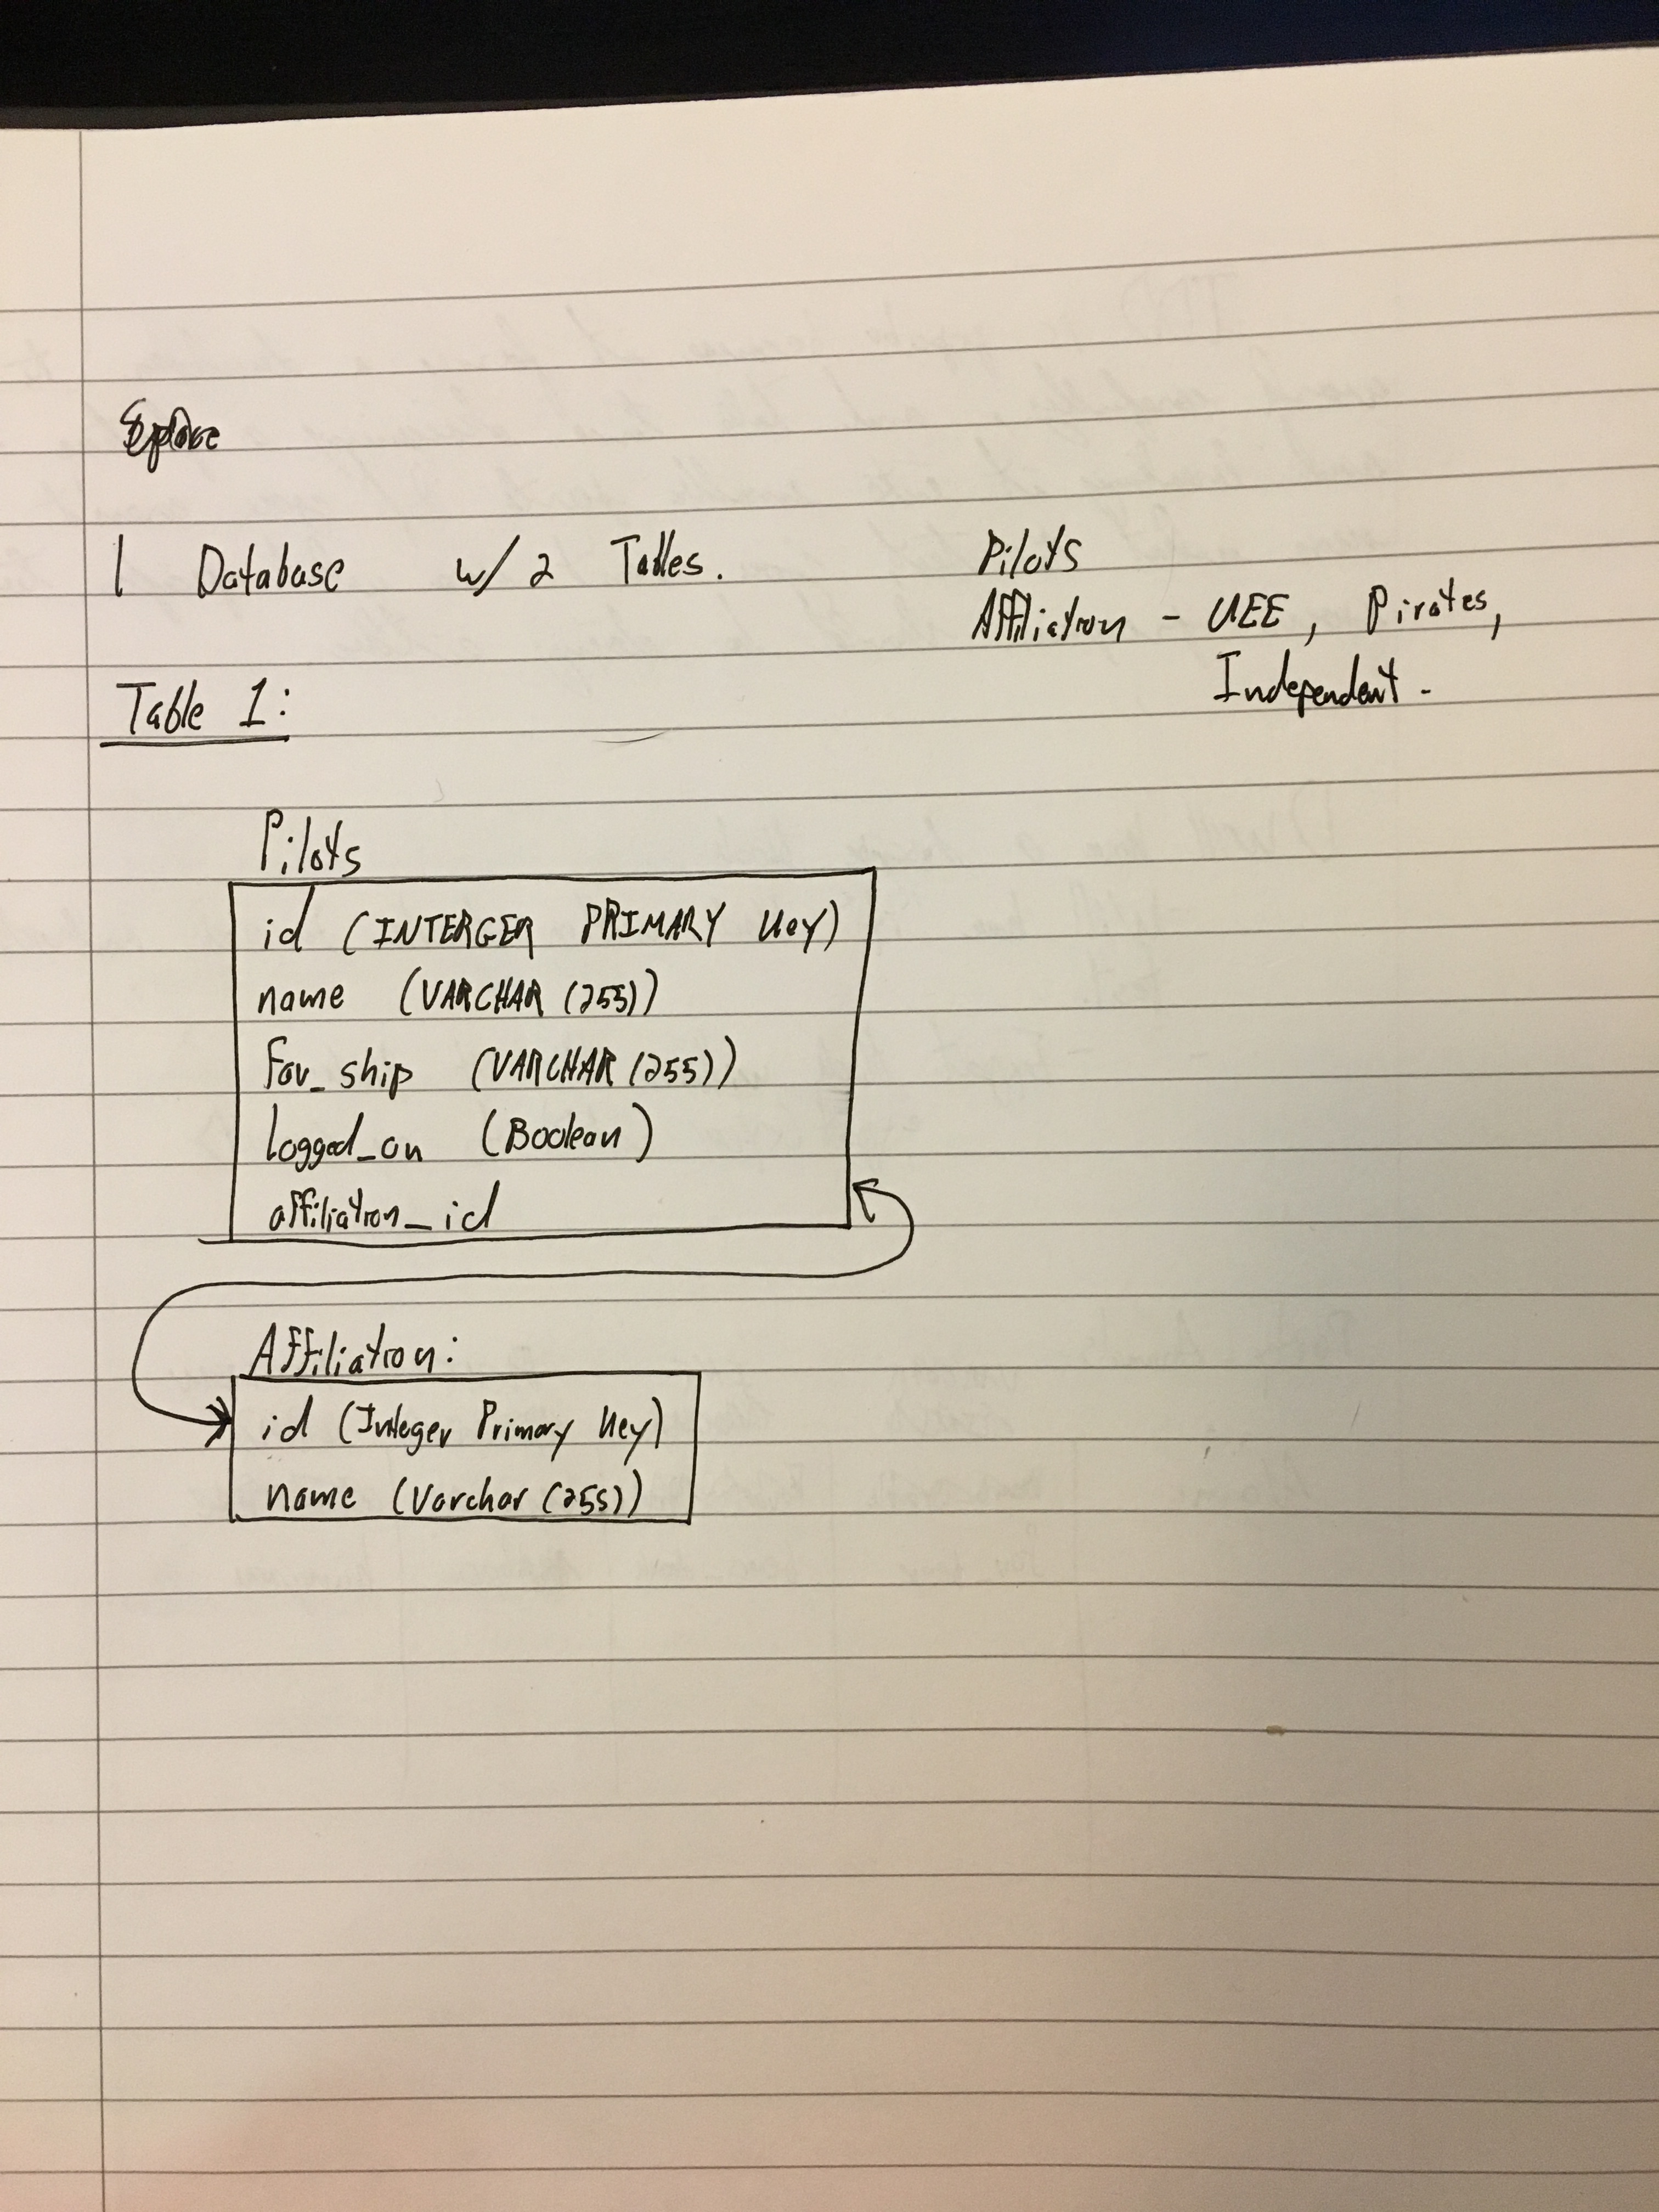 1 Database w/ 2 Tables.
Pilots
Affiliation - UEE, Pirates,
Independent.
Table 1:
Pilots
id (INTERGER PRIMARY Key)
name (VARCHAR (255))
Fav_ship (VARCHAR (255))
Logged_on (Boolean)
affiliation_id
Affiliation:
id (Integer Primary Key)
name (Varchar (255))